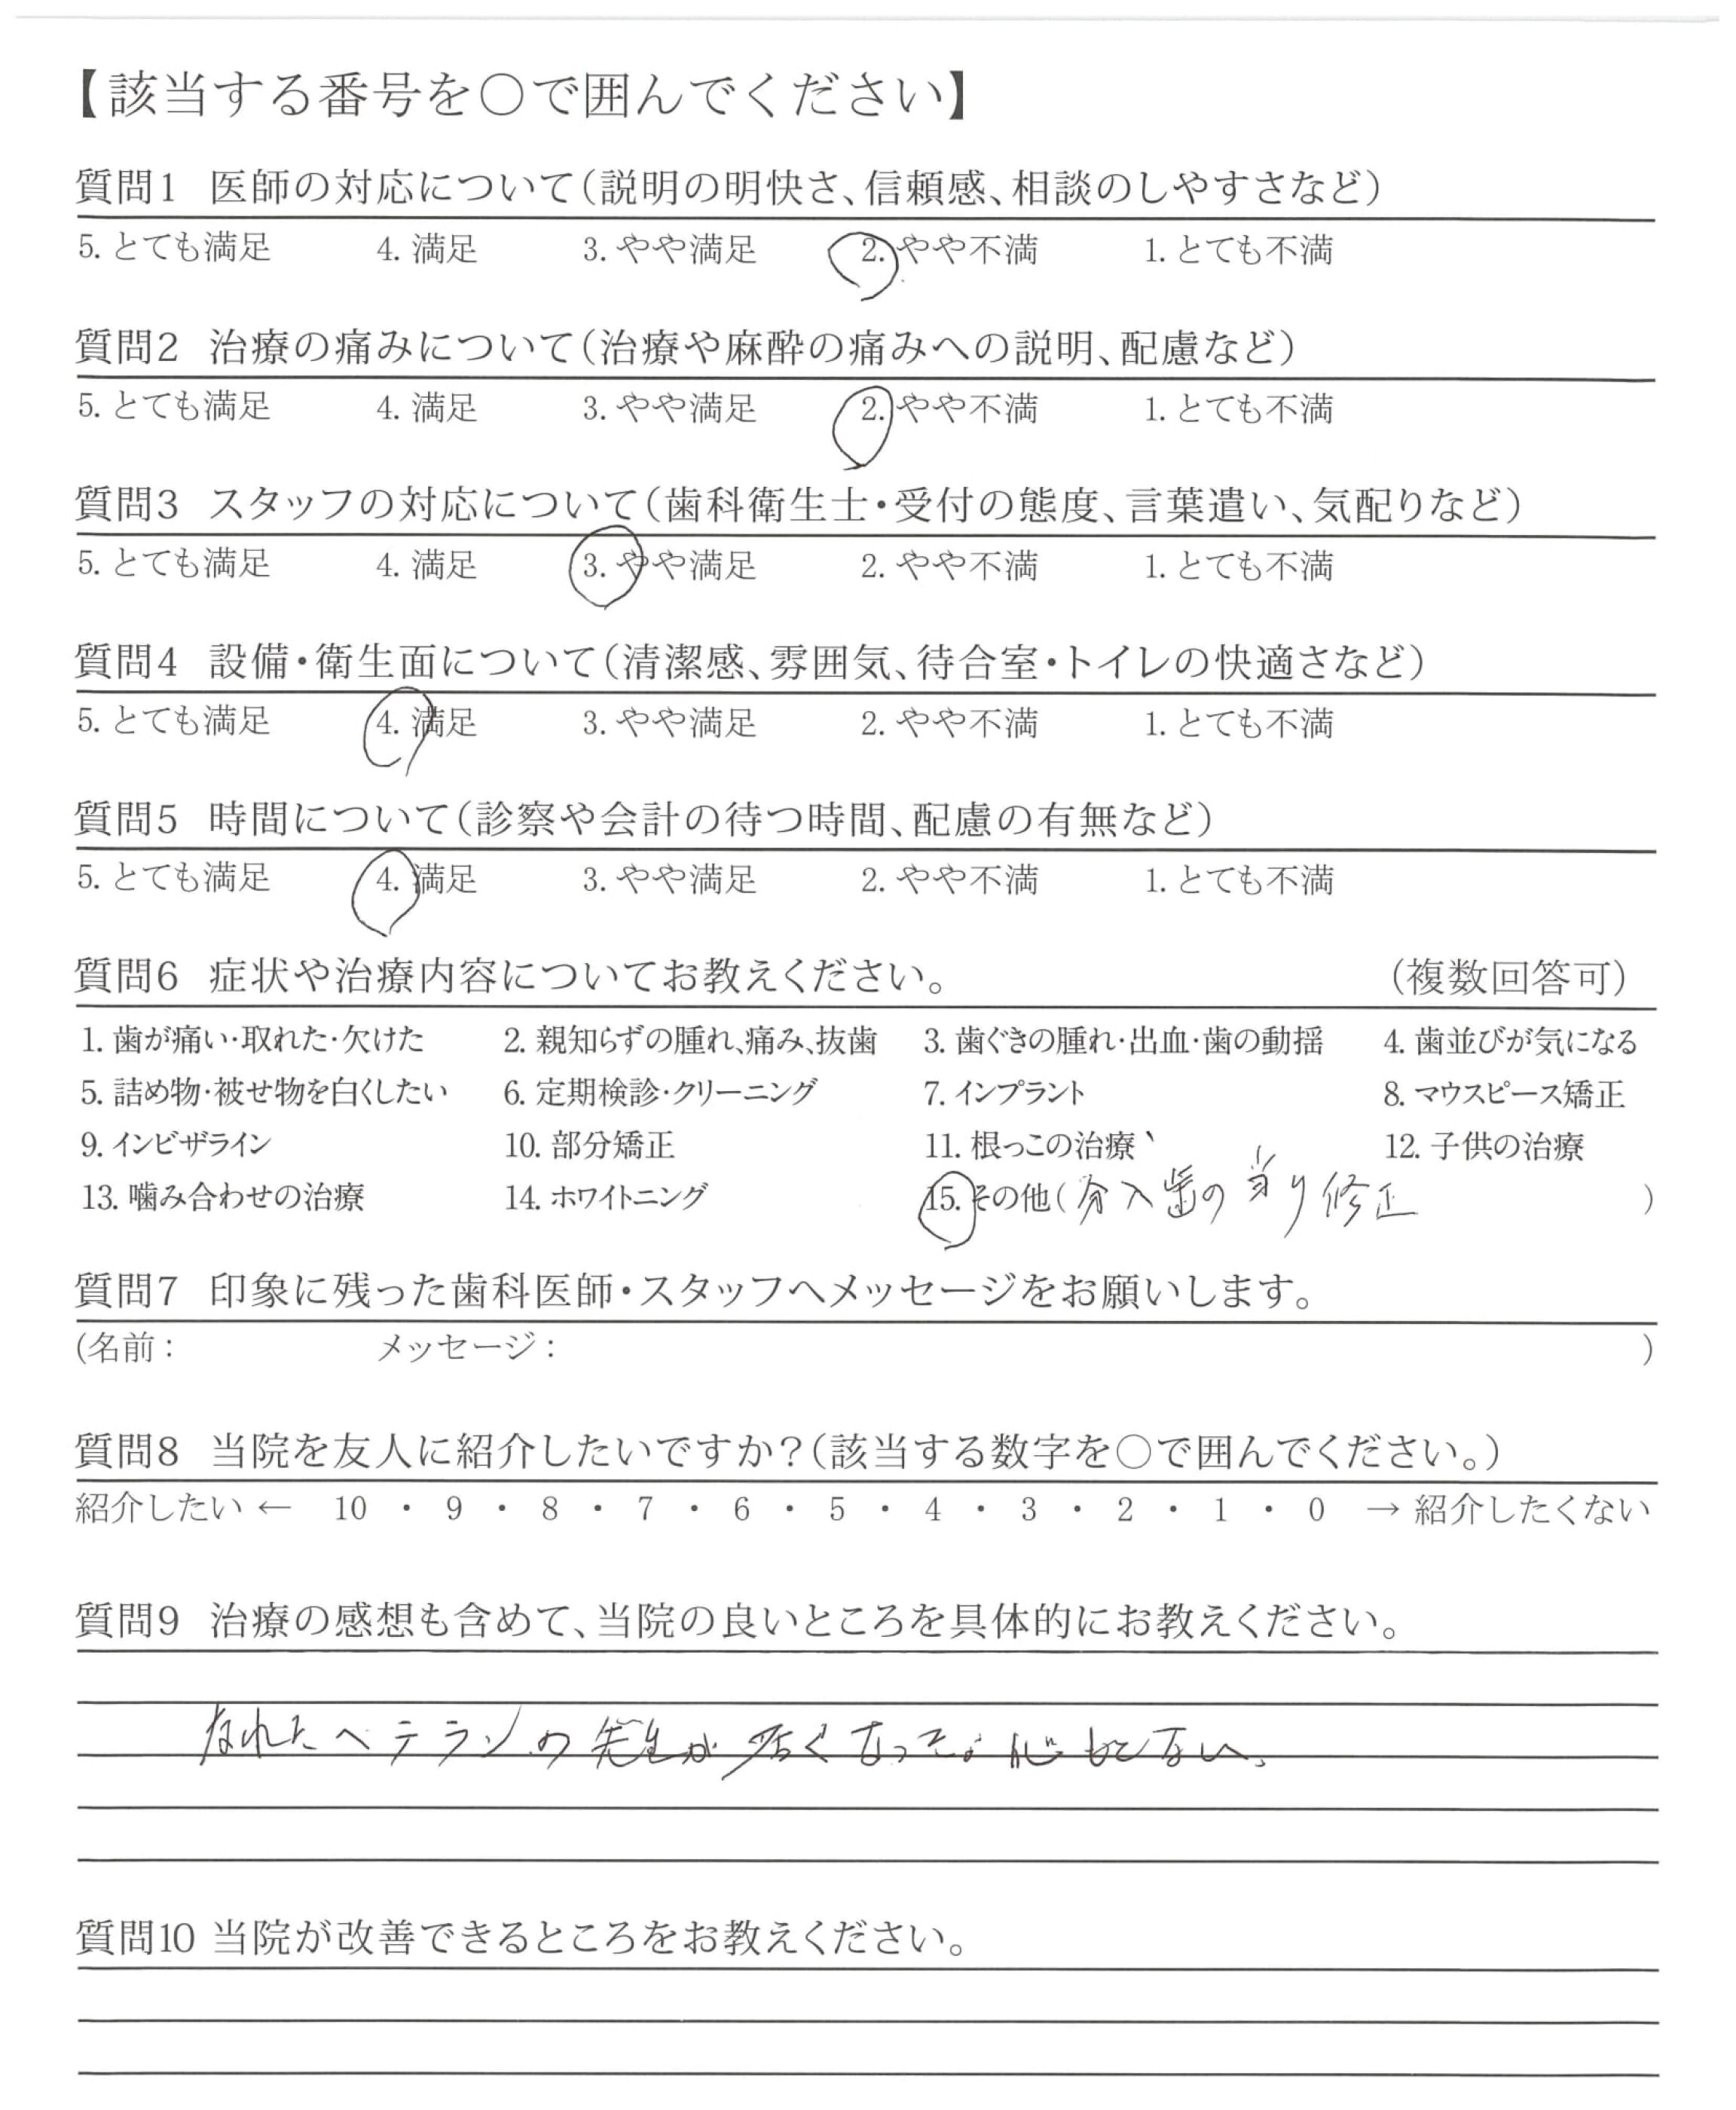 【該当する番号を○で囲んでください】
質問1 医師の対応について（説明の明快さ、信頼感、相談のしやすさなど）
5. とても満足 4. 満足 3. やや満足 2. やや不満 1. とても不満
質問2 治療の痛みについて（治療や麻酔の痛みへの説明、配慮など）
5. とても満足 4. 満足 3. やや満足 2. やや不満 1. とても不満
質問3 スタッフの対応について（歯科衛生士・受付の態度、言葉遣い、気配りなど）
5. とても満足 4. 満足 3. やや満足 2. やや不満 1. とても不満
質問4 設備・衛生面について（清潔感、雰囲気、待合室・トイレの快適さなど）
5. とても満足 4. 満足 3. やや満足 2. やや不満 1. とても不満
質問5 時間について（診察や会計の待つ時間、配慮の有無など）
5. とても満足 4. 満足 3. やや満足 2. やや不満 1. とても不満
質問6 症状や治療内容についてお教えください。 （複数回答可）
1. 歯が痛い・取れた・欠けた 2. 親知らずの腫れ、痛み、抜歯 3. 歯ぐきの腫れ・出血・歯の動揺 4. 歯並びが気になる
5. 詰め物・被せ物を白くしたい 6. 定期検診・クリーニング 7. インプラント 8. マウスピース矯正
9. インビザライン 10. 部分矯正 11. 根っこの治療 12. 子供の治療
13. 噛み合わせの治療 14. ホワイトニング 15. その他（入歯の当り修正）
質問7 印象に残った歯科医師・スタッフへメッセージをお願いします。
(名前： メッセージ： )
質問8 当院を友人に紹介したいですか？（該当する数字を○で囲んでください。）
紹介したい ← 10 ・ 9 ・ 8 ・ 7 ・ 6 ・ 5 ・ 4 ・ 3 ・ 2 ・ 1 ・ 0 → 紹介したくない
質問9 治療の感想も含めて、当院の良いところを具体的にお教えください。
なれたベテランの先生が なって 心もとない。
質問10 当院が改善できるところをお教えください。